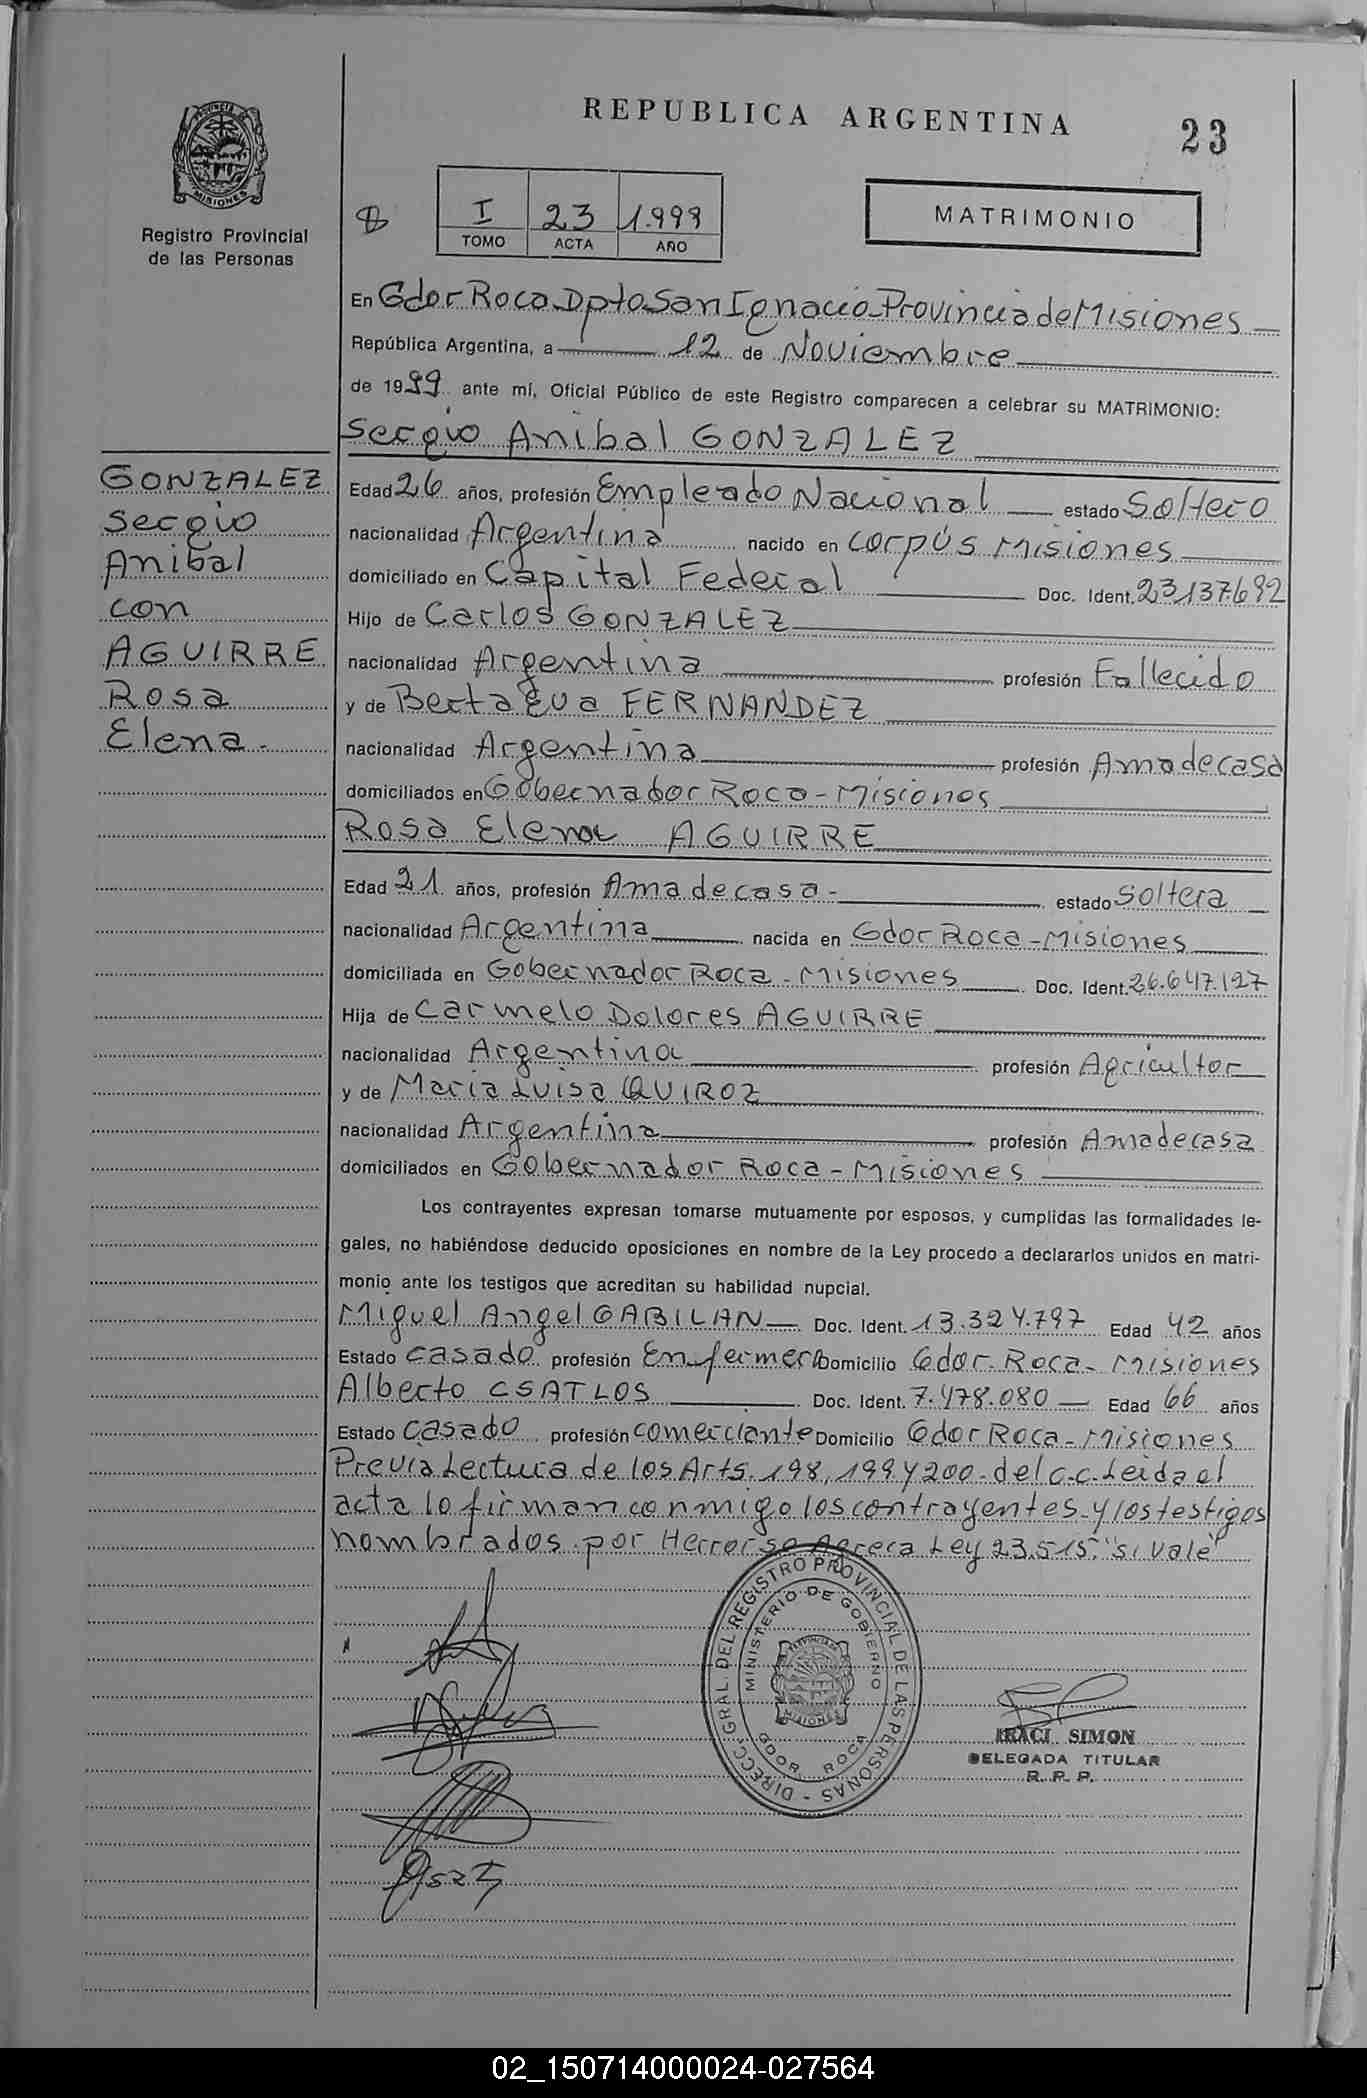 REPUBLICA ARGENTINA
23
PROVINCIA DE
MISIONES
Registro Provincial
de las Personas
I 23 1.999
TOMO ACTA AÑO
MATRIMONIO
En Gdor Roca Dpto San Ignacio Provincia de Misiones
República Argentina, a 12 de Noviembre
de 1999 ante mí, Oficial Público de este Registro comparecen a celebrar su MATRIMONIO:
Sergio Anibal GONZALEZ
GONZALEZ
Sergio
Anibal
con
AGUIRRE
Rosa
Elena.
Edad 26 años, profesión Empleado Nacional estado Soltero
nacionalidad Argentina nacido en Corpús Misiones
domiciliado en Capital Federal Doc. Ident. 23137692
Hijo de Carlos GONZALEZ
nacionalidad Argentina profesión Fallecido
y de Berta Eva FERNANDEZ
nacionalidad Argentina profesión Ama de casa
domiciliados en Gobernador Roca - Misiones
Rosa Elena AGUIRRE
Edad 21 años, profesión Ama de casa - estado Soltera
nacionalidad Argentina nacida en Gdor Roca - Misiones
domiciliada en Gobernador Roca - Misiones Doc. Ident. 26.647.127
Hija de Carmelo Dolores AGUIRRE
nacionalidad Argentina profesión Agricultor
y de Maria Luisa QUIROZ
nacionalidad Argentina profesión Ama de casa
domiciliados en Gobernador Roca - Misiones
Los contrayentes expresan tomarse mutuamente por esposos, y cumplidas las formalidades le-
gales, no habiéndose deducido oposiciones en nombre de la Ley procedo a declararlos unidos en matri-
monio ante los testigos que acreditan su habilidad nupcial.
Miguel Angel GABILAN Doc. Ident. 13.324.797 Edad 42 años
Estado Casado profesión Enfermero Domicilio Gdor. Roca - Misiones
Alberto CSATLOS Doc. Ident. 7.478.080 Edad 66 años
Estado Casado profesión comerciante Domicilio Gdor Roca - Misiones
Previa Lectura de los Arts. 198, 199 y 200 - del C.C. Leida el
acta lo firman conmigo los contrayentes y los testigos
nombrados. por Herror se Agreca Ley 23.515: "si vale"
DIRECC. GRAL. DEL REGISTRO PROVINCIAL DE LAS PERSONAS
MINISTERIO DE GOBIERNO
GDOR ROCA
IRACI SIMON
DELEGADA TITULAR
R. P. P.
02_150714000024-027564